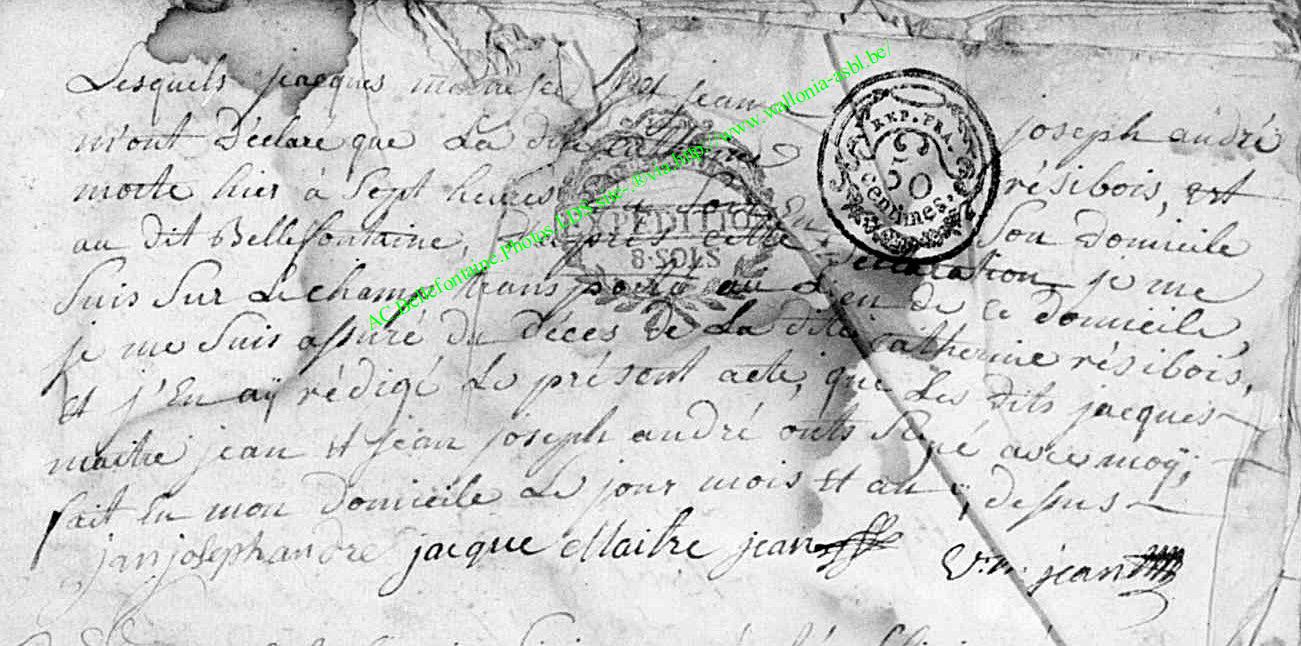 Lesquels jacques et jean joseph andré
m'ont Déclaré que La dite Catherine résibois, est
morte hier à Sept heures du Soir En Son Domicile
au dit Bellefontaine, D'après cette Déclaration, je me
Suis Sur Le champ transporté au Lieu de ce domicile,
je me Suis assuré du décès de La dite Catherine résibois,
et j'En aÿ rédigé Le présent acte, que Les dits jacques
maitre jean et jean joseph andré onts Signé avec moÿ;
fait En mon Domicile Le jour mois et an ÿ dessus
janjosephandre jacque Maitre jean
jean
REP. FRA.
50
centimes.
EXPEDITION
8·SOLS
AC.Bellefontaine.Photos LDS.site-.®via.http://www.wallonia-asbl.be/